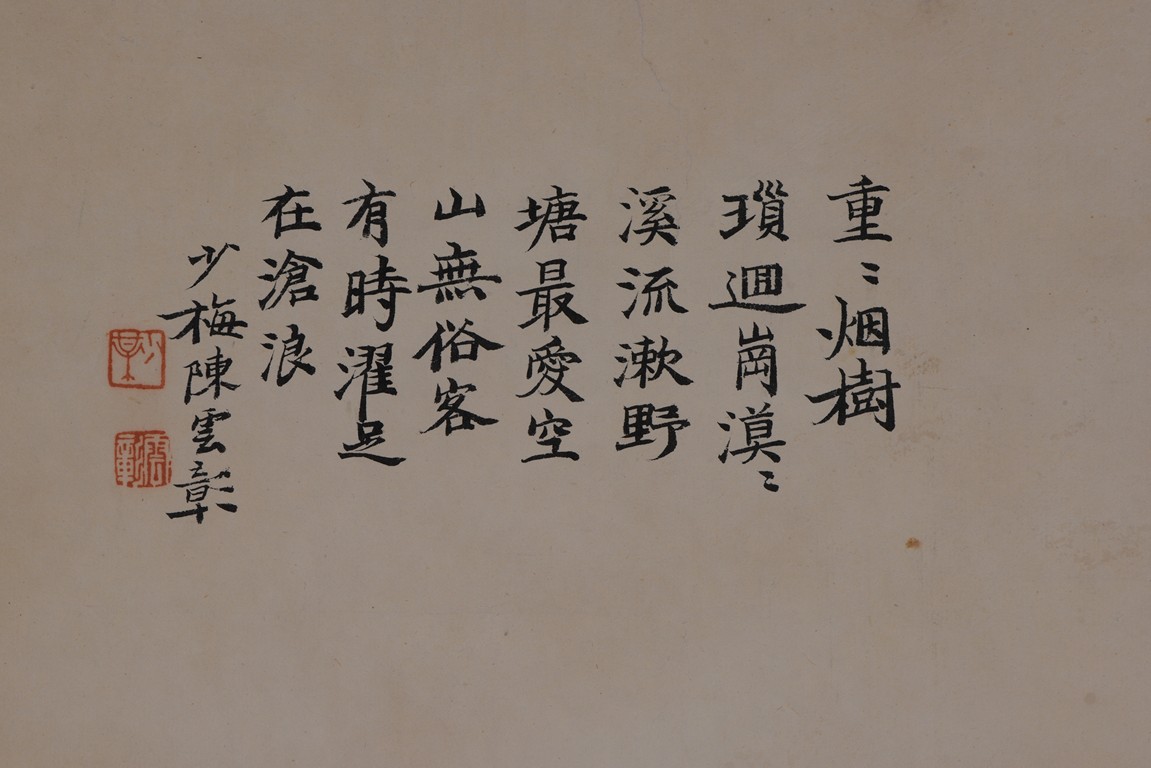 重〻烟樹
瑣迴崗漠〻
溪流漱野
塘最愛空
山無俗客
有時濯足
在滄浪
少梅陳雲彰
少梅
雲彰